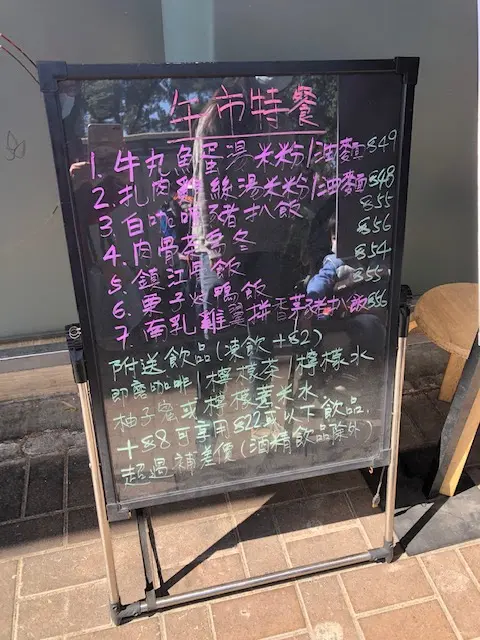 午市特餐
1. 牛丸魚蛋湯米粉/油麵 $49
2. 扎肉雞絲湯米粉/油麵 $48
3. 白咖喱豬扒飯 $55
4. 肉骨茶烏冬 $56
5. 鎮江骨飯 $54
6. 栗子炆鴨飯 $55
7. 南乳雞翼拼香茅豬扒飯 $56
附送飲品(凍飲+$2)
即磨咖啡/檸檬茶/檸檬水
柚子蜜或檸檬薏米水.
+$8可享用$22或以下飲品.
超過補差價(酒精飲品除外)